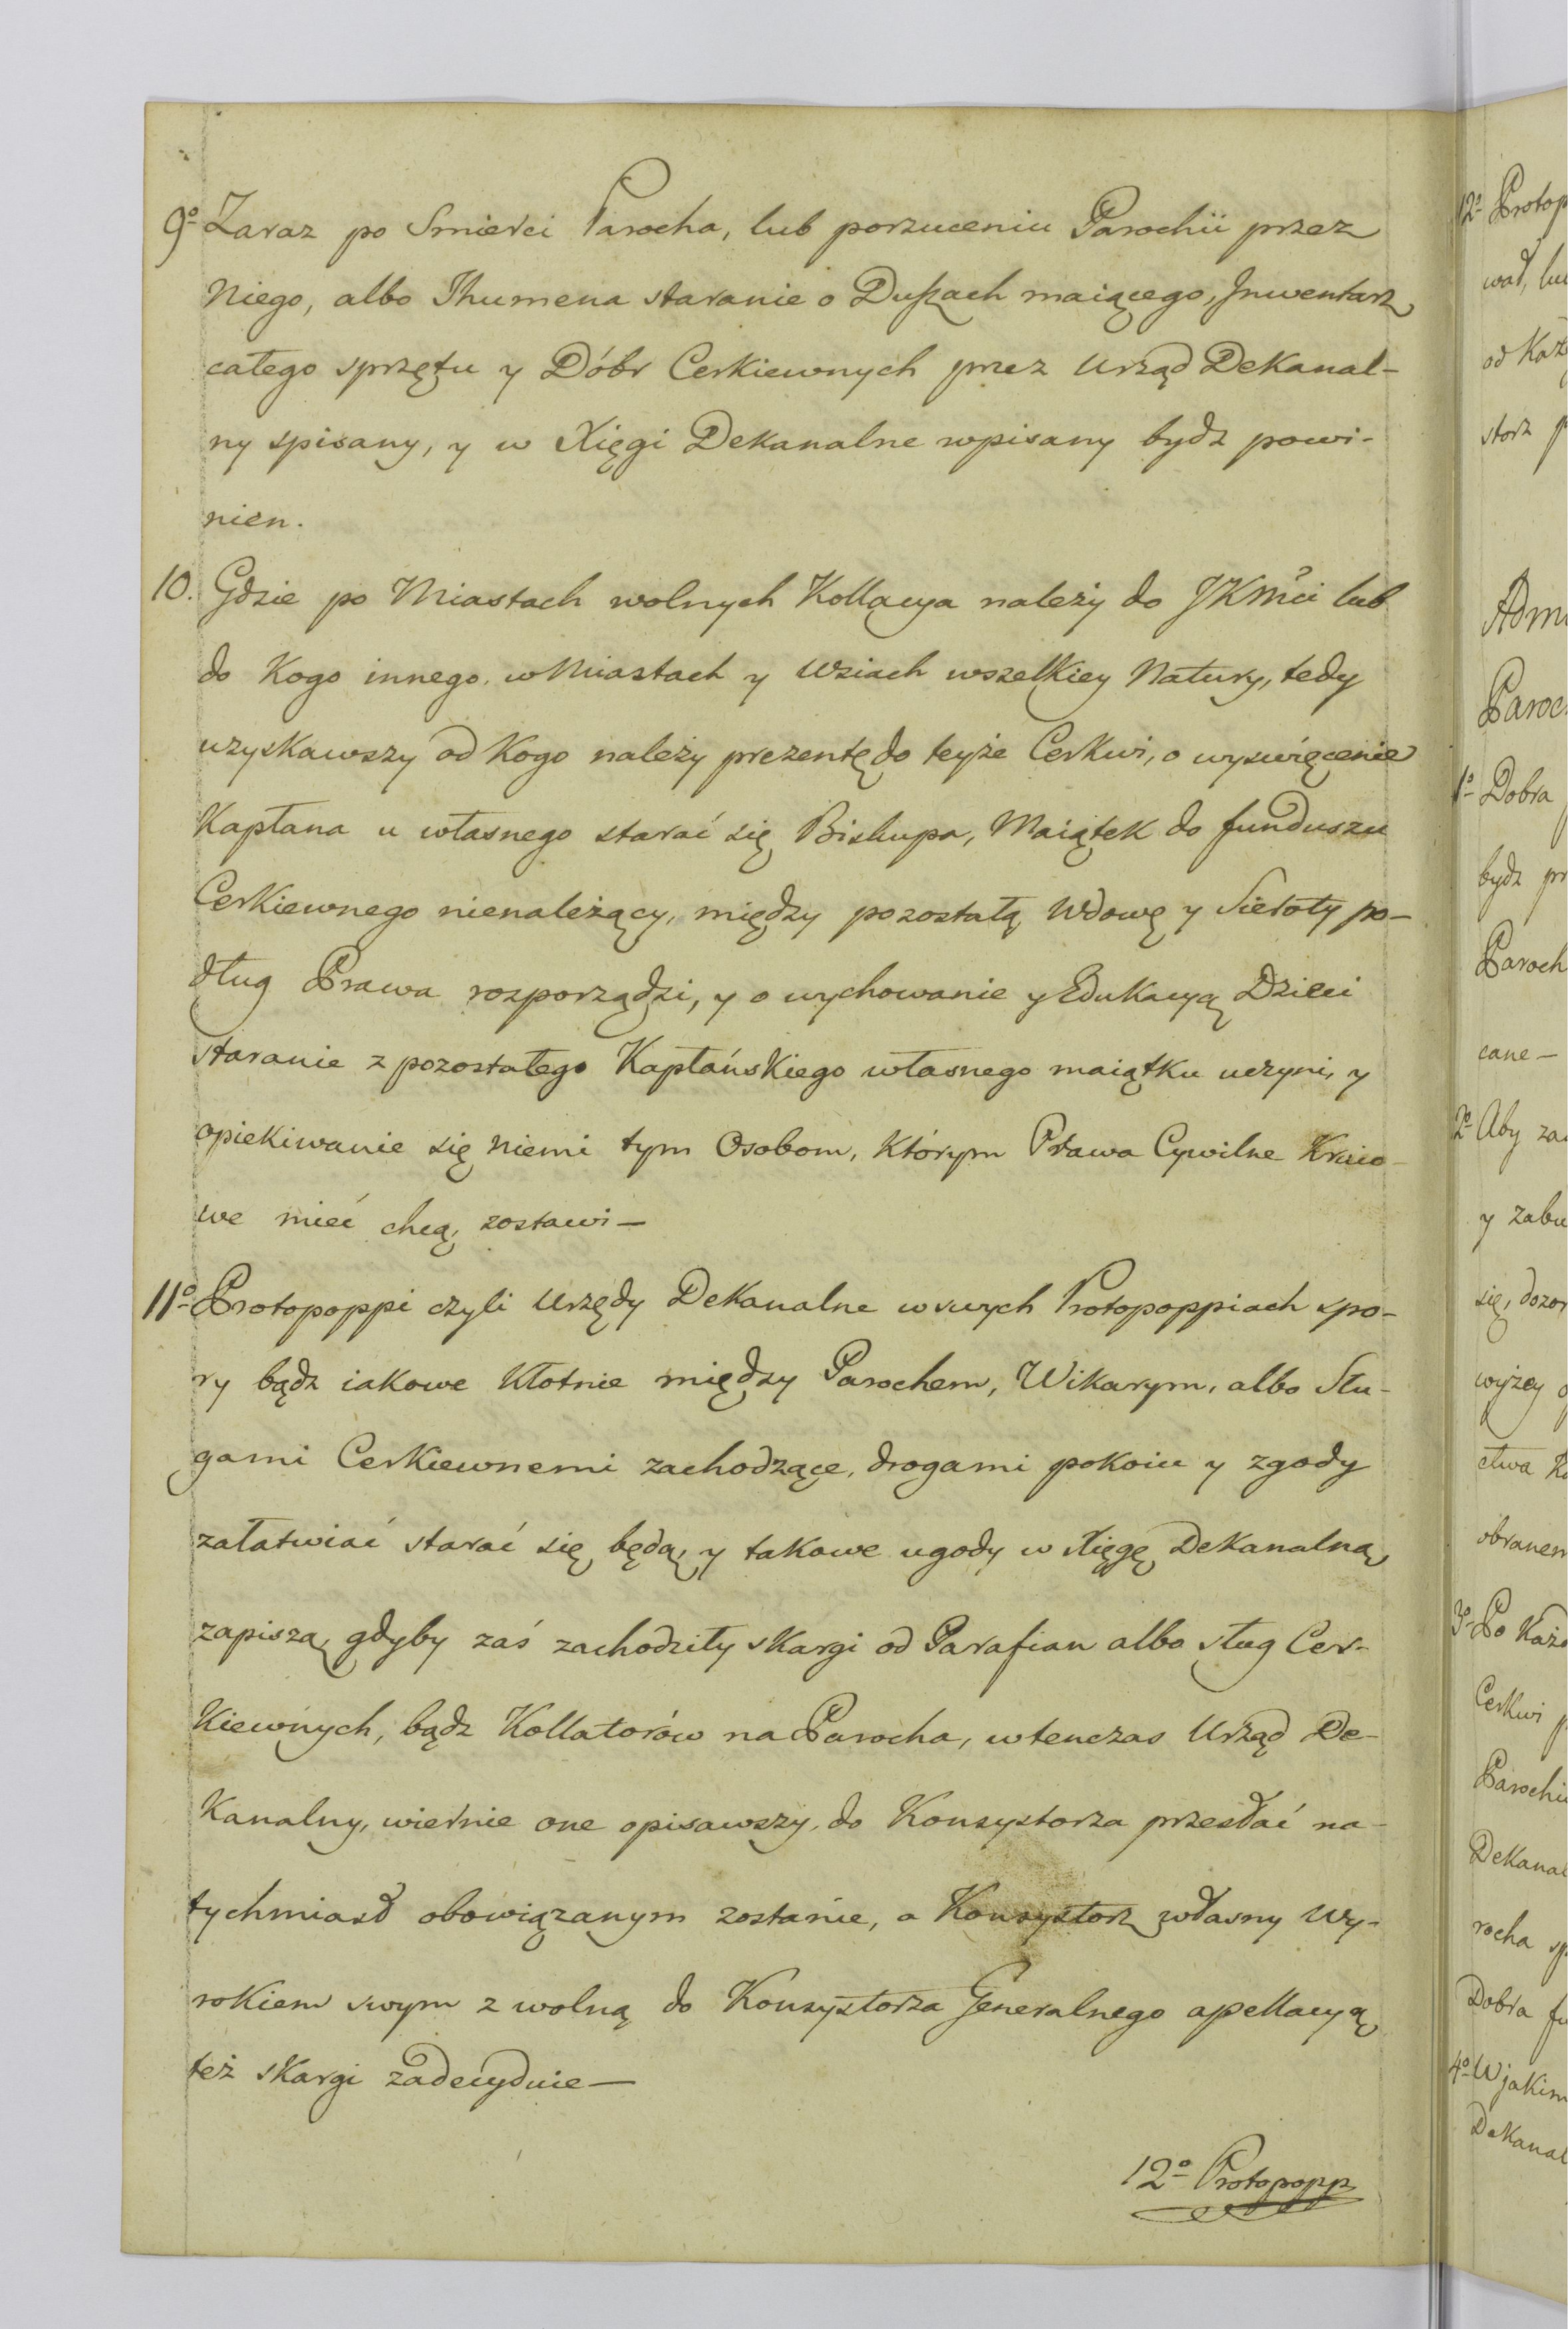 9º Zaraz po Smierci Parocha, lub porzuceniu Parochii przez
Niego, albo Ihumena staranie o Duszach maiącego, Inwentarz
całego sprzętu y Dóbr Cerkiewnych przez Urząd Dekanal-
ny spisany, y w Xięgi Dekanalne wpisany bydz powi-
nien.
10. Gdzie po Miastach wolnych Kollacya należy do JKMći lub
do Kogo innego. w Miastach y Wsiach wszelkiey Natury, tedy
uzyskawszy od Kogo należy prezentę do teyże Cerkwi, o wyswięcenie
Kapłana u własnego starać się Biskupa, Maiątek do funduszu
Cerkiewnego nienależący, między pozostałą Wdowę y Sieroty po-
dług Prawa rozporządzi, y o wychowanie y Edukacyą Dzieci
staranie z pozostałego Kapłańskiego własnego maiątku uczyni, y
opiekiwanie się niemi tym Osobom, którym Prawa Cywilne Kraio-
we mieć chcą, zostawi —
11º Protopoppi czyli Urzędy Dekanalne w swych Protopoppiach spo-
ry bądz iakowe Kłotnie między Parochem, Wikarym, albo Słu-
gami Cerkiewnemi zachodzące, drogami pokoiu y zgody
załatwiać starać się będą, y takowe ugody w Xięgę Dekanalną
zapiszą, gdyby zaś zachodziły skargi od Parafian albo sług Cer-
Kiewnych, bądz Kollatorów na Parocha, wtenczas Urząd De-
Kanalny, wiernie one opisawszy, do Konsystorza przesłać na-
tychmiast obowiązanym zostanie, a Konsystorz własny Wy-
rokiem swym z wolną do Konsystorza Generalnego apellacyą
też skargi zadecyduie —
12º Protopopp
12º Protop
wał, lu
od Każ
storz p
Adm
Paroc
1º Dobra
bydz pr
Paroch
cane —
2º Aby za
y zabu
się, dozor
wyżey o
ctwa K
obranem
3º Po Każ
Cerkwi p
Parochi
Dekanal
rocha sp
Dobra fu
4º W jakim
Dekanal